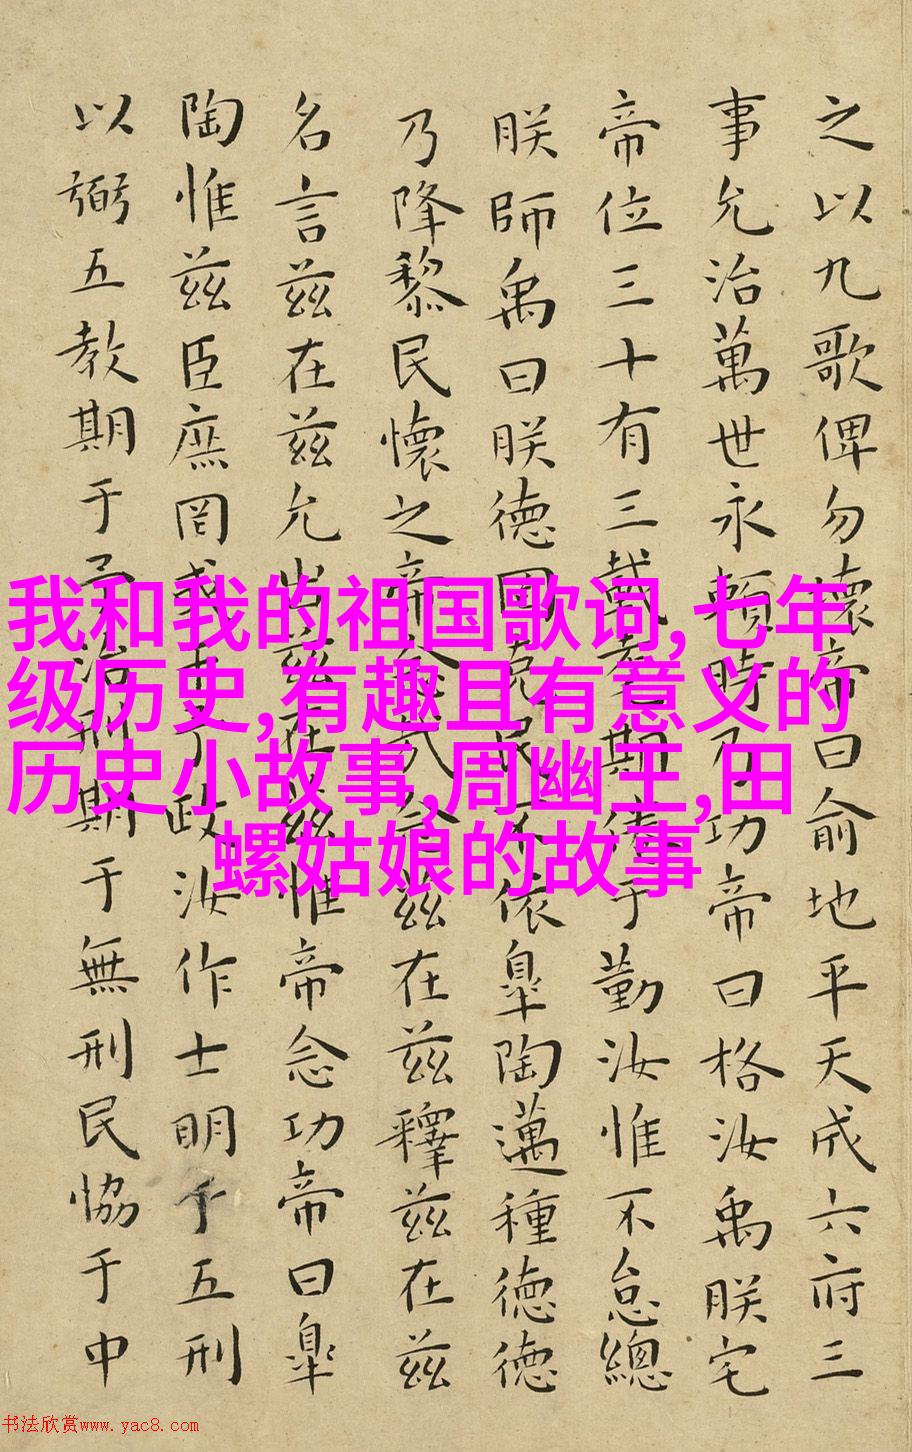 之以九歌俾勿壞帝曰俞地平天成六府三
事允治萬世永賴時乃功帝曰格汝禹朕宅
帝位三十有三載耄期倦于勤汝惟不怠總
朕師禹曰朕德罔克民不依皐陶邁種德德
乃降黎民懷之帝念哉念茲在茲釋茲在茲
名言茲在茲允出茲在茲惟帝念功帝曰皐
陶惟茲臣庶罔或干予政汝作士明于五刑
以弼五教期于予治刑期于無刑民協于中
我和我的祖国歌词,七年
级历史,有趣且有意义的
历史小故事,周幽王,田
螺姑娘的故事
书法欣赏www.yac8.com